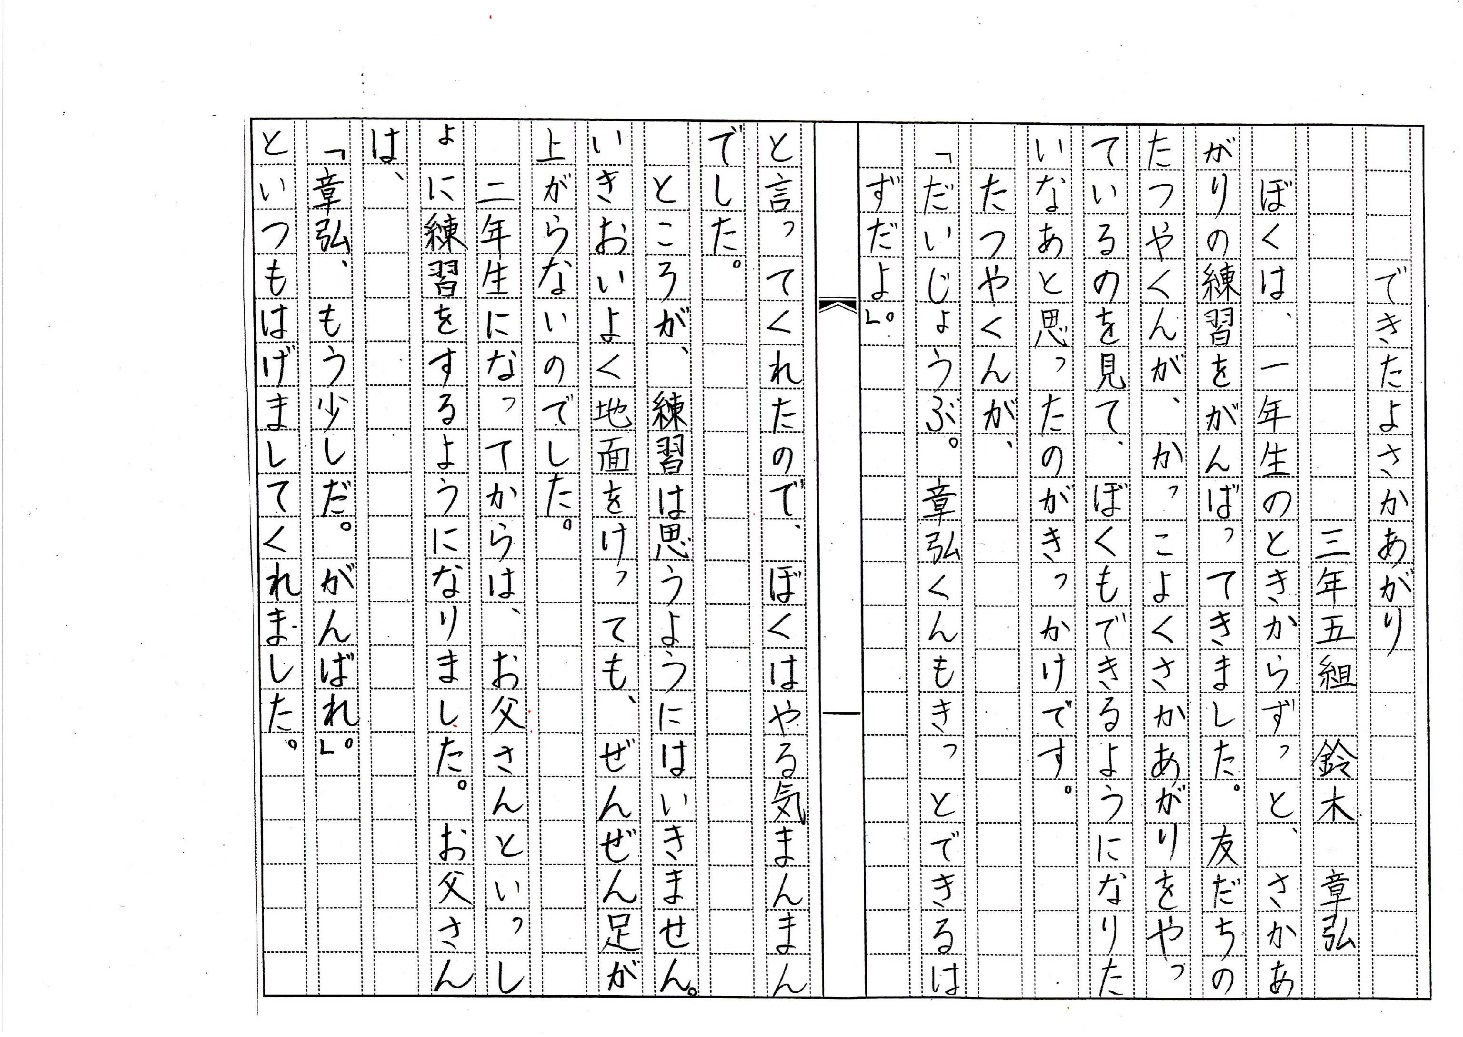 できたよさかあがり
三年五組　鈴木　章弘
ぼくは、一年生のときからずっと、さかあ
がりの練習をがんばってきました。友だちの
たつやくんが、かっこよくさかあがりをやっ
ているのを見て、ぼくもできるようになりた
いなあと思ったのがきっかけです。
たつやくんが、
「だいじょうぶ。章弘くんもきっとできるは
ずだよ」。
と言ってくれたので、ぼくはやる気まんまん
でした。
ところが、練習は思うようにはいきません。
いきおいよく地面をけっても、ぜんぜん足が
上がらないのでした。
二年生になってからは、お父さんといっし
ょに練習をするようになりました。お父さん
は、
「章弘、もう少しだ。がんばれ」。
といつもはげましてくれました。